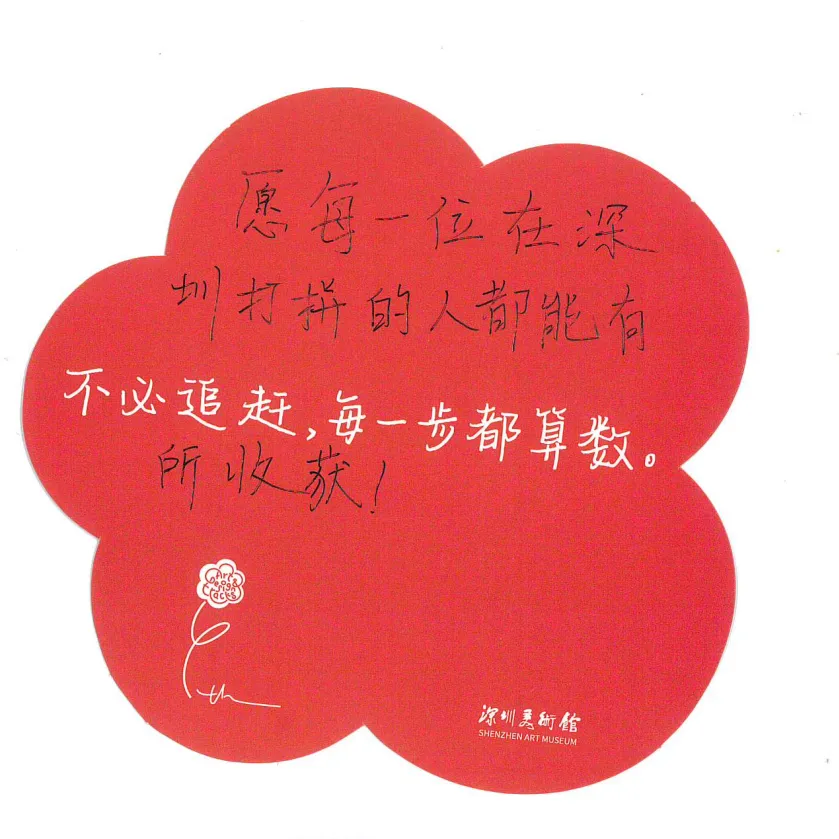 愿每一位在深
圳打拼的人都能有
不必追赶,每一步都算数。
所收获!
Art
Design
Tracks
深圳美術館
SHENZHEN ART MUSEUM